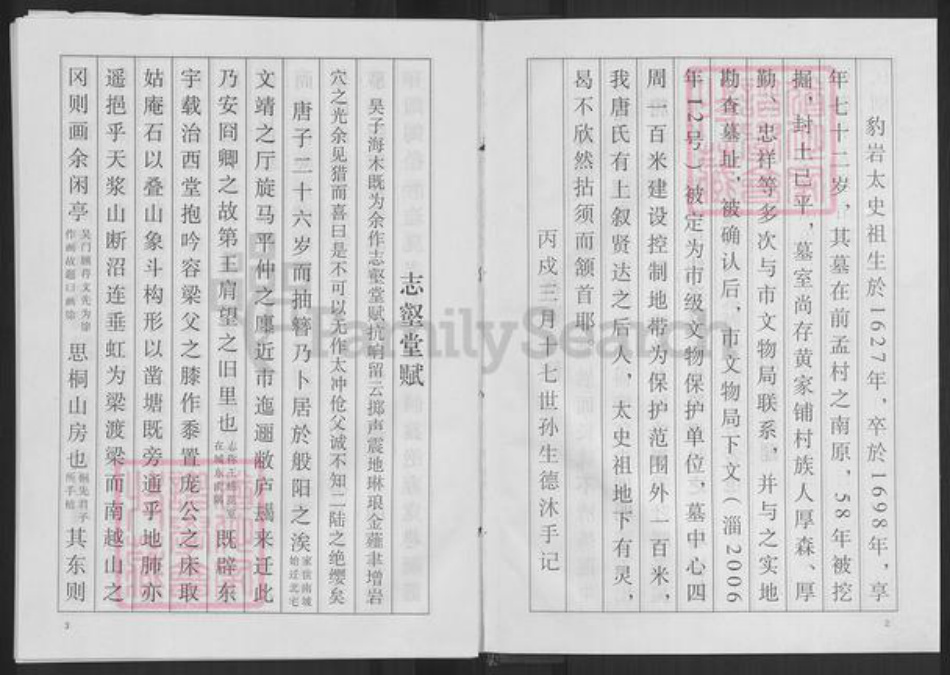 豹岩太史祖生於1627年，卒於1698年，享
年七十二岁，其墓在前孟村之南原，58年被挖
掘，封土已平，墓室尚存黄家铺村族人厚森、厚
勤、忠祥等多次与市文物局联系，并与之实地
勘查墓址，被确认后，市文物局下文（淄2006
年12号）被定为市级文物保护单位，墓中心四
周一百米建设控制地带为保护范围外一百米，
我唐氏有上叙贤达之后人，太史祖地下有灵，
曷不欣然拈须而颔首耶。
丙戍三月十七世孙生德沐手记
2
志壑堂赋
吴子海木既为余作志壑堂赋抗响留云掷声震地琳琅金薤聿增岩
穴之光余见猎而喜曰是不可以无作太冲伧父诚不知二陆之绝缨矣
唐子二十六岁而抽簪乃卜居於般阳之涘家世南坡始迁北宅
文靖之厅旋马平仲之廛近市迤逦敝庐曷来迁此
乃安囧卿之故第王肩望之旧里也在城东南隅既辟东
宇载治西堂抱吟容梁父之膝作黍置庞公之床取
姑庵石以叠山象斗构形以凿塘既旁通乎地肺亦
遥挹乎天浆山断沼连垂虹为梁渡梁而南越山之
冈则画余闲亭吴门顾符文先为涂作画故题曰画馀思桐山房也桐先君子所手植其东则
3
FamilySearch